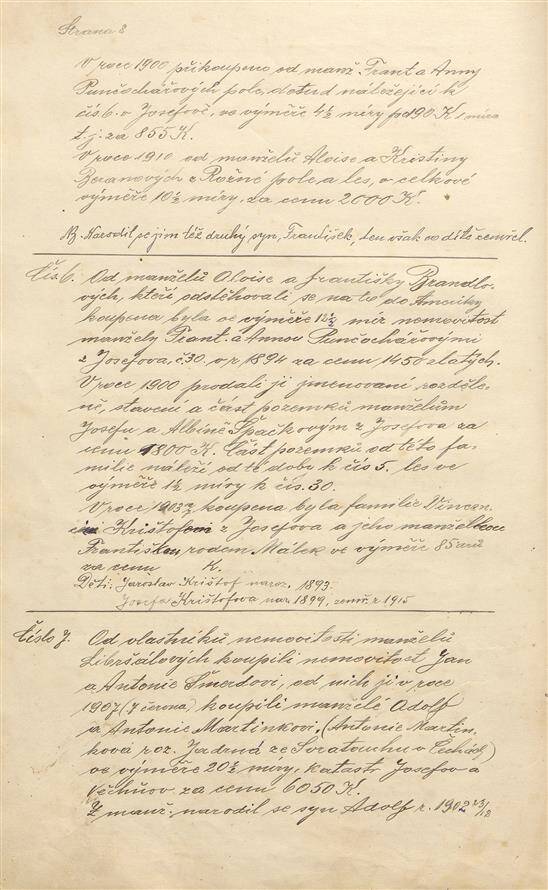 Strana 8
V roce 1900 přikoupeno od manž. Frant a Anny
Punčochářových pole, dotud náležející k
čís. 6. v Josefově, ve výměře 4½ míry pd 190 K 1 míra
t. j. za 855 K.
V roce 1910 od manželů Aloise a Kristiny
Beranových z Rožné pole a les, v celkové
výměře 10½ míry, za cenu 2000 K.
NB. Narodil se jim též druhý syn, František, ten však co dítě zemřel.
Čís. 6. Od manželů Aloise a Františky Brandlo-
vých, kteří odstěhovali se na to do Ameriky
koupena byla ve výměře 12½ mír nemovitost
manžely Frant. a Annou Punčochářovými
z Josefova, č. 30. v r. 1894 za cenu 1450 zlatých.
V roce 1900 prodali ji jmenovaní rozděle-
ně, stavení a část pozemků manželům
Josefu a Albíně Špačkovým z Josefova za
cenu 1800 K. Část pozemků od této fa-
milie náleží od té doby k čís 5. les ve
výměře 1½ míry k čís. 30.
V roce 1903 koupena byla familie Vincen-
Krištofem z Josefova a jeho manželkou
Františkou rodem Málek ve výměře 85 arů
za cenu K.
Děti: Jaroslav Krištof naroz. 1893.
Josefa Krištofova nar. 1899, zemř. r. 1915
Číslo 7. Od vlastníků nemovitosti manželů
Libršálových koupili nemovitost Jan
a Antonie Šmerdovi, od nich ji v roce
1907 (7 června) koupili manželé Adolf
a Antonie Martinkovi, (Antonie Martin-
ková roz. Jadrná ze Svratouchu v Čechách)
ve výměře 20½ míry, katastr Josefov a
Věchnov za cenu 6050 K.
Z manž. narodil se syn Adolf r. 1902 23/12